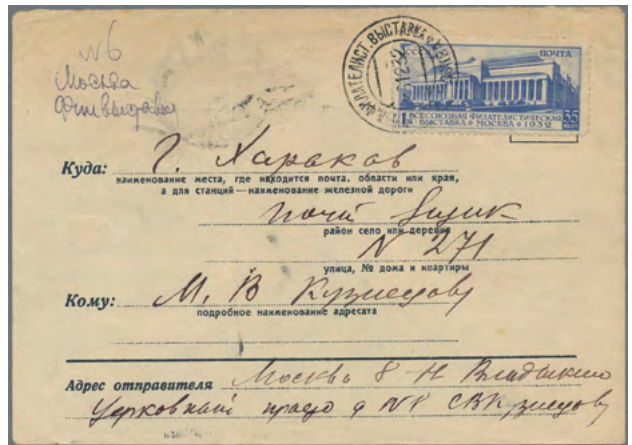 N6
Москва
Филвыставка
ФИЛАТЕЛИСТ. ВЫСТАВКА
ПОЧТА
ВСЕСОЮЗНАЯ ФИЛАТЕЛИСТИЧЕСКАЯ
ВЫСТАВКА • МОСКВА • 1932
Куда: Г. Хараков
наименование места, где находится почта, области или края,
а для станций — наименование железной дороги
почт ящик
район село или деревня
N 271
улица, № дома и квартиры
Кому: М. В Кузнецову
подробное наименование адресата
Адрес отправителя Москва 8 Н Владыкино
Церковный проезд д N8